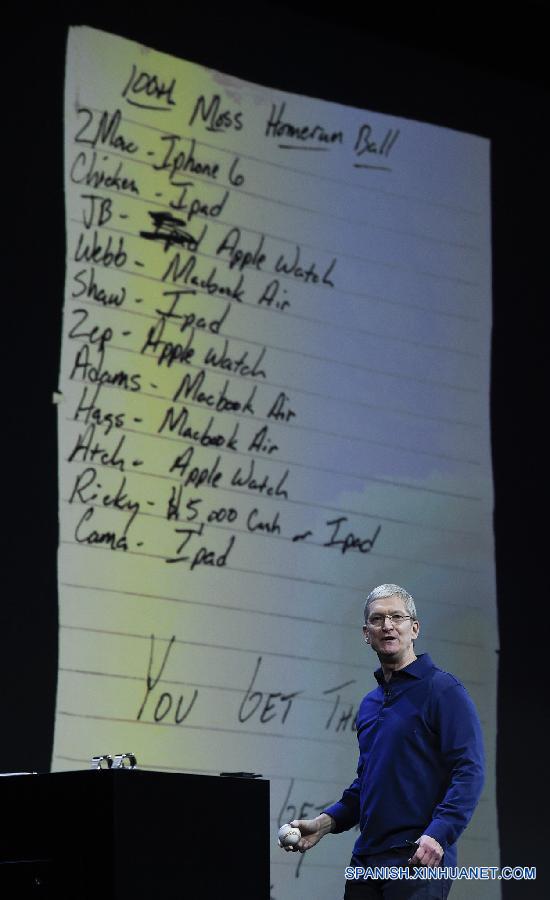 100th Moss Homerun Ball
2Mac - Iphone 6
Chicken - Ipad
JB - Apple Watch
Webb - Macbook Air
Shaw - Ipad
Zep - Apple Watch
Adams - Macbook Air
Hags - Macbook Air
Atch - Apple Watch
Ricky - $5,000 Cash or Ipad
Cama - Ipad
You Get
Get
SPANISH.XINHUANET.COM